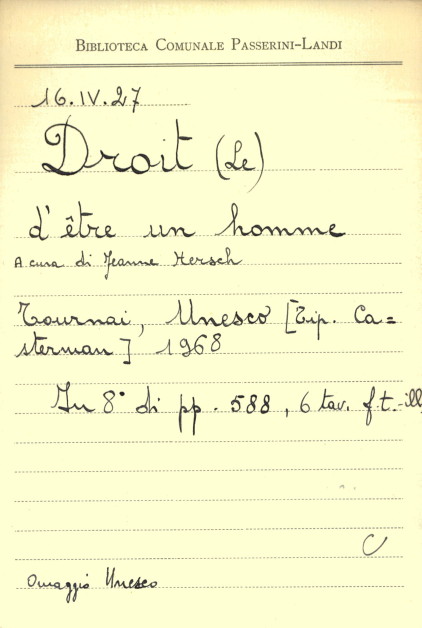 BIBLIOTECA COMUNALE PASSERINI-LANDI
16.IV.27
Droit (Le)
d'être un homme
A cura di Jeanne Hersch
Tournai, Unesco [Tip. Ca=
sterman] 1968
In 8° di pp. 588, 6 tav. f.t.-ill
C
Omaggio Unesco